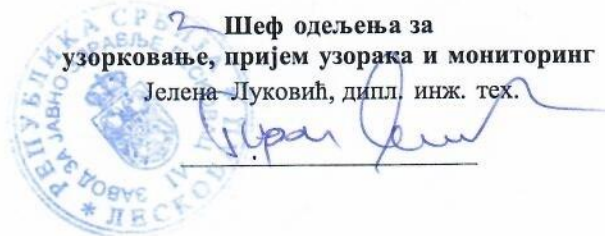 Шеф одељења за
узорковање, пријем узорака и мониторинг
Јелена Луковић, дипл. инж. тех.
РЕПУБЛИКА СРБИЈА
ЗАВОД ЗА ЈАВНО ЗДРАВЉЕ